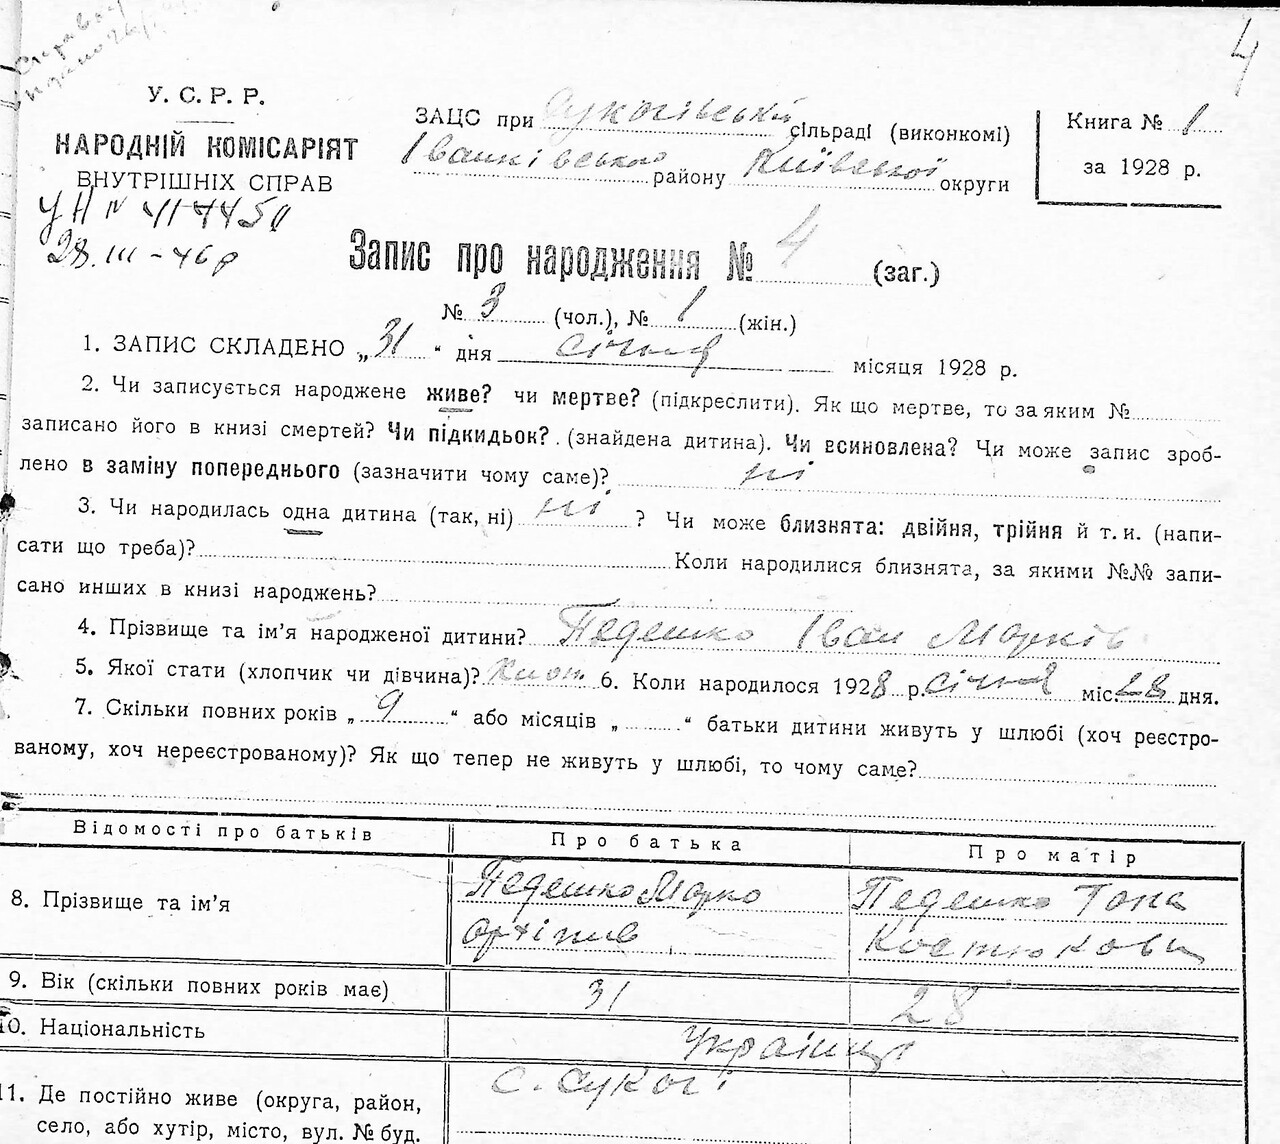 4
У. С. Р. Р.
НАРОДНІЙ КОМІСАРІЯТ
ВНУТРІШНІХ СПРАВ
28.III-46р
ЗАЦС при Сукачівській сільраді (виконкомі)
Іванківського району Київської округи
Книга № 1
за 1928 р.
Запис про народження № 4 (заг.)
№ 3 (чол.), № 1 (жін.)
1. ЗАПИС СКЛАДЕНО „ 31 “ дня січня місяця 1928 р.
2. Чи записується народжене живе? чи мертве? (підкреслити). Як що мертве, то за яким №
записано його в книзі смертей? Чи підкидьок? . (знайдена дитина). Чи всиновлена? Чи може запис зроб-
лено в заміну попереднього (зазначити чому саме)? ні
3. Чи народилась одна дитина (так, ні) ні ? Чи може близнята: двійня, трійня й т. и. (напи-
сати що треба)? Коли народилися близнята, за якими №№ запи-
сано инших в книзі народжень?
4. Прізвище та ім’я народженої дитини? Педешко Іван Марків
5. Якої стати (хлопчик чи дівчина)? 6. Коли народилося 1928 р. січня міс. 28 дня.
7. Скільки повних років „ 9 “ або місяців „ “ батьки дитини живуть у шлюбі (хоч реєстро-
ваному, хоч нереєстрованому)? Як що тепер не живуть у шлюбі, то чому саме?
Відомості про батьків Про батька Про матір
8. Прізвище та ім’я Педешко Марко Педешко
Архіпів Костюкова
9. Вік (скільки повних років має) 31 28
10. Національність Українці
11. Де постійно живе (округа, район, с. Сукачі
село, або хутір, місто, вул. № буд.